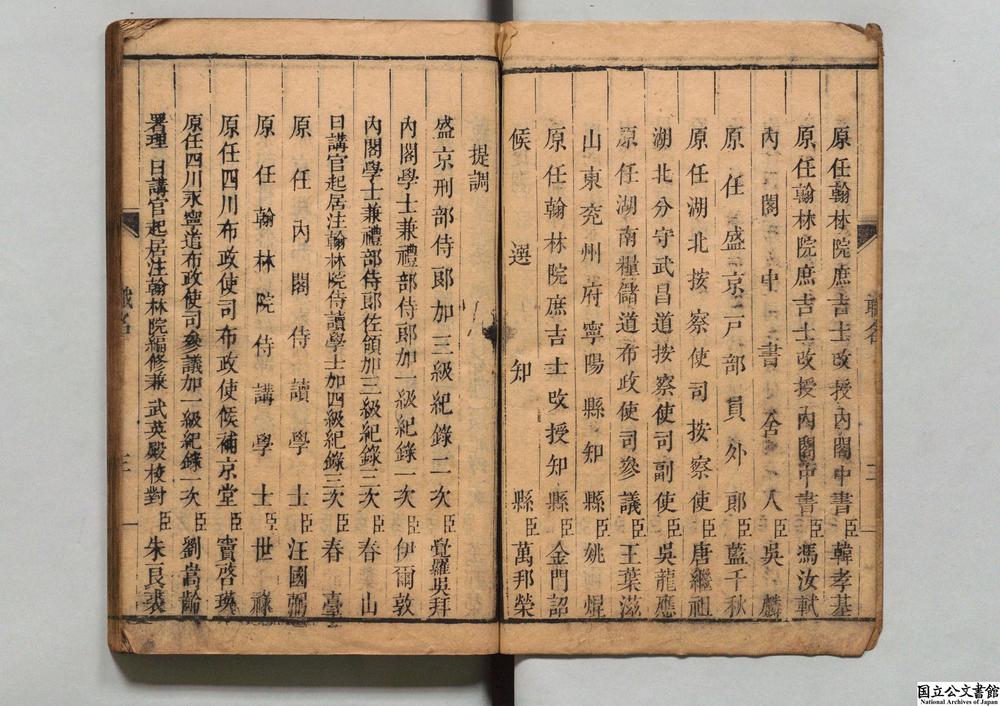 原任翰林院庶吉士改授內閣中書臣韓孝基
原任翰林院庶吉士改授內閣中書臣馮汝軾
內閣中書舍人臣吳麟
原任盛京戶部員外郎臣藍千秋
原任湖北按察使司按察使臣唐繼祖
湖北分守武昌道按察使司副使臣吳龍應
原任湖南糧儲道布政使司參議臣王葉滋
山東兖州府寧陽縣知縣臣姚焜
原任翰林院庶吉士改授知縣臣金門詔
候選知縣臣萬邦榮
提調
盛京刑部侍郎加三級紀錄二次臣覺羅吳拜
內閣學士兼禮部侍郎加一級紀錄一次臣伊爾敦
內閣學士兼禮部侍郎佐領加三級紀錄二次臣春山
日講官起居注翰林院侍讀學士加四級紀錄三次臣春臺
原任內閣侍讀學士臣汪國弼
原任翰林院侍講學士臣世祿
原任四川布政使司布政使候補京堂臣竇啓瑛
原任四川永寧道布政使司參議加一級紀錄一次臣劉嵩齡
署理日講官起居注翰林院編修兼武英殿校對臣朱良裘
職名
三
国立公文書館
National Archives of Japan